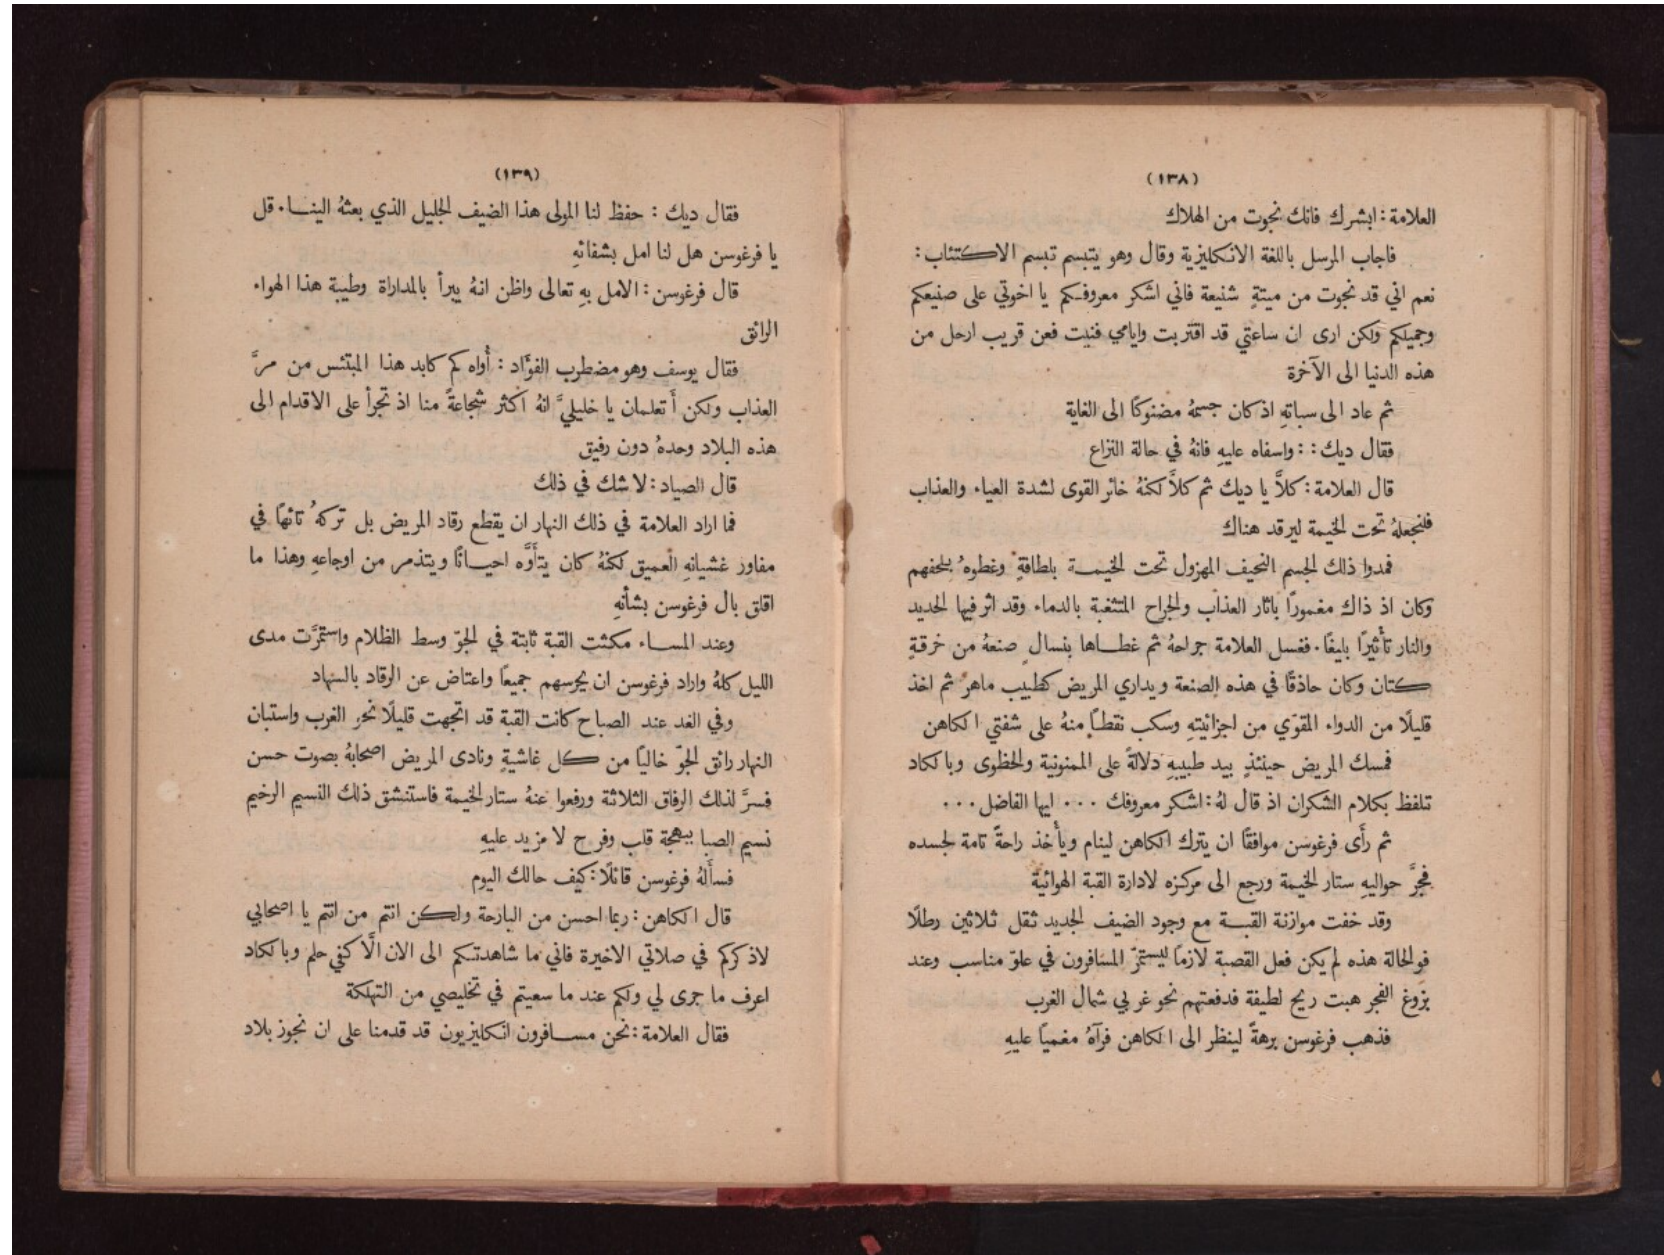 (١٣٨)
العلامة: ابشرك فانك نجوت من الهلاك
فاجاب المرسل باللغة الانكليزية وقال وهو يتبسم تبسم الاكتئاب:
نعم اني قد نجوت من ميتةٍ شنيعة فاني اشكر معروفكم يا اخوتي على صنيعكم
وجميلكم ولكن ارى ان ساعتي قد اقتربت وايامي فنيت فعن قريب ارحل من
هذه الدنيا الى الآخرة
ثم عاد الى سباتهِ اذ كان جسمهُ مضنوكًا الى الغاية
فقال ديك: : واسفاه عليهِ فانهُ في حالة النزاع
قال العلامة: كلاَّ يا ديك ثم كلاَّ لكنهُ خائر القوى لشدة العياء والعذاب
فلنجعلهُ تحت الخيمة ليرقد هناك
فمدوا ذلك الجسم النحيف المهزول تحت الخيمة بلطافةٍ وغطوهُ بلحفهم
وكان اذ ذاك مغمورًا باثار العذاب والجراح المتثغبة بالدماء وقد اثر فيها الحديد
والنار تأثيرًا بليغًا. فغسل العلامة جراحهُ ثم غطاها بنسالٍ صنعهُ من خرقةٍ
كتان وكان حاذقًا في هذه الصنعة ويداري المريض كطبيب ماهر ثم اخذ
قليلًا من الدواء المقوّي من اجزائيتهِ وسكب نقطًا منهُ على شفتي الكاهن
فمسك المريض حينئذٍ بيد طبيبهِ دلالةً على الممنونية والحظوى وبالكاد
تلفظ بكلام الشكران اذ قال لهُ: اشكر معروفك ... ايها الفاضل...
ثم رأى فرغوسن موافقًا ان يترك الكاهن لينام ويأخذ راحةً تامة لجسده
فجرَّ حواليهِ ستار الخيمة ورجع الى مركزه لادارة القبة الهوائية
وقد خفت موازنة القبة مع وجود الضيف الجديد ثقل ثلاثين رطلًا
فوالحالة هذه لم يكن فعل القصبة لازمًا ليستمرّ المسافرون في علوّ مناسب وعند
بزوغ الفجر هبت ريح لطيفة فدفعتهم نحو غربي شمال الغرب
فذهب فرغوسن برهةً لينظر الى الكاهن فرآهُ مغميًا عليهِ
(١٣٩)
فقال ديك: حفظ لنا المولى هذا الضيف الجليل الذي بعثهُ الينا. قل
يا فرغوسن هل لنا امل بشفائهِ
قال فرغوسن: الامل بهِ تعالى واظن انهُ يبرأ بالمداراة وطيبة هذا الهواء
الرائق
فقال يوسف وهو مضطرب الفؤَاد: أواه كم كابد هذا المبتئس من مرَّ
العذاب ولكن أ تعلمان يا خليليَّ انهُ اكثر شجاعةً منا اذ تجرأ على الاقدام الى
هذه البلاد وحدهُ دون رفيق
قال الصياد: لا شك في ذلك
فما اراد العلامة في ذلك النهار ان يقطع رقاد المريض بل تركهُ تائهًا في
مفاوز غشيانهِ العميق لكنهُ كان يتأَوَّه احيانًا ويتذمر من اوجاعهِ وهذا ما
اقلق بال فرغوسن بشأنهِ
وعند المساء مكثت القبة ثابتة في الجوّ وسط الظلام واستمرَّت مدى
الليل كلهُ واراد فرغوسن ان يحرسهم جميعًا واعتاض عن الرقاد بالسهاد
وفي الغد عند الصباح كانت القبة قد اتجهت قليلًا نحو الغرب واستبان
النهار رائق الجوّ خاليًا من كل غاشيةٍ ونادى المريض اصحابهُ بصوت حسن
فسرَّ لذلك الرفاق الثلاثة ورفعوا عنهُ ستار الخيمة فاستنشق ذلك النسيم الرخيم
نسيم الصبا ببهجة قلب وفرح لا مزيد عليهِ
فسأَلهُ فرغوسن قائلًا: كيف حالك اليوم
قال الكاهن: ربما احسن من البارحة ولكن انتم من انتم يا اصحابي
لاذكركم في صلاتي الاخيرة فاني ما شاهدتكم الى الان الَّا كفي حلم وبالكاد
اعرف ما جرى لي ولكم عند ما سعيتم في تخليصي من التهلكة
فقال العلامة: نحن مسافرون انكليزيون قد قدمنا على ان نجوز بلاد